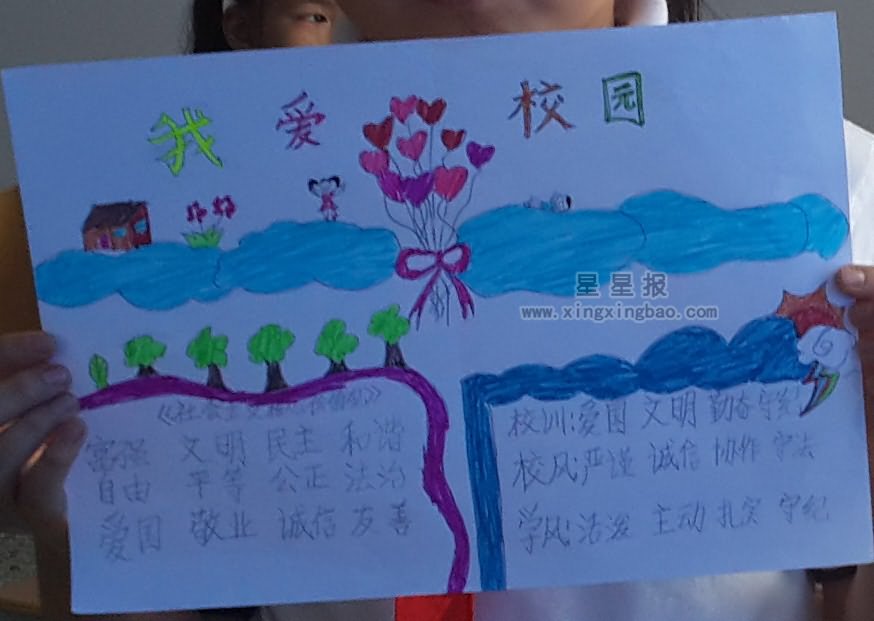 我 爱 校 园
星星报
www.xingxingbao.com
《社会主义核心价值观》
富强 文明 民主 和谐
自由 平等 公正 法治
爱国 敬业 诚信 友善
校训:爱国 文明 勤奋
校风:严谨 诚信 协作 守法
学风:活泼 主动 扎实 守纪